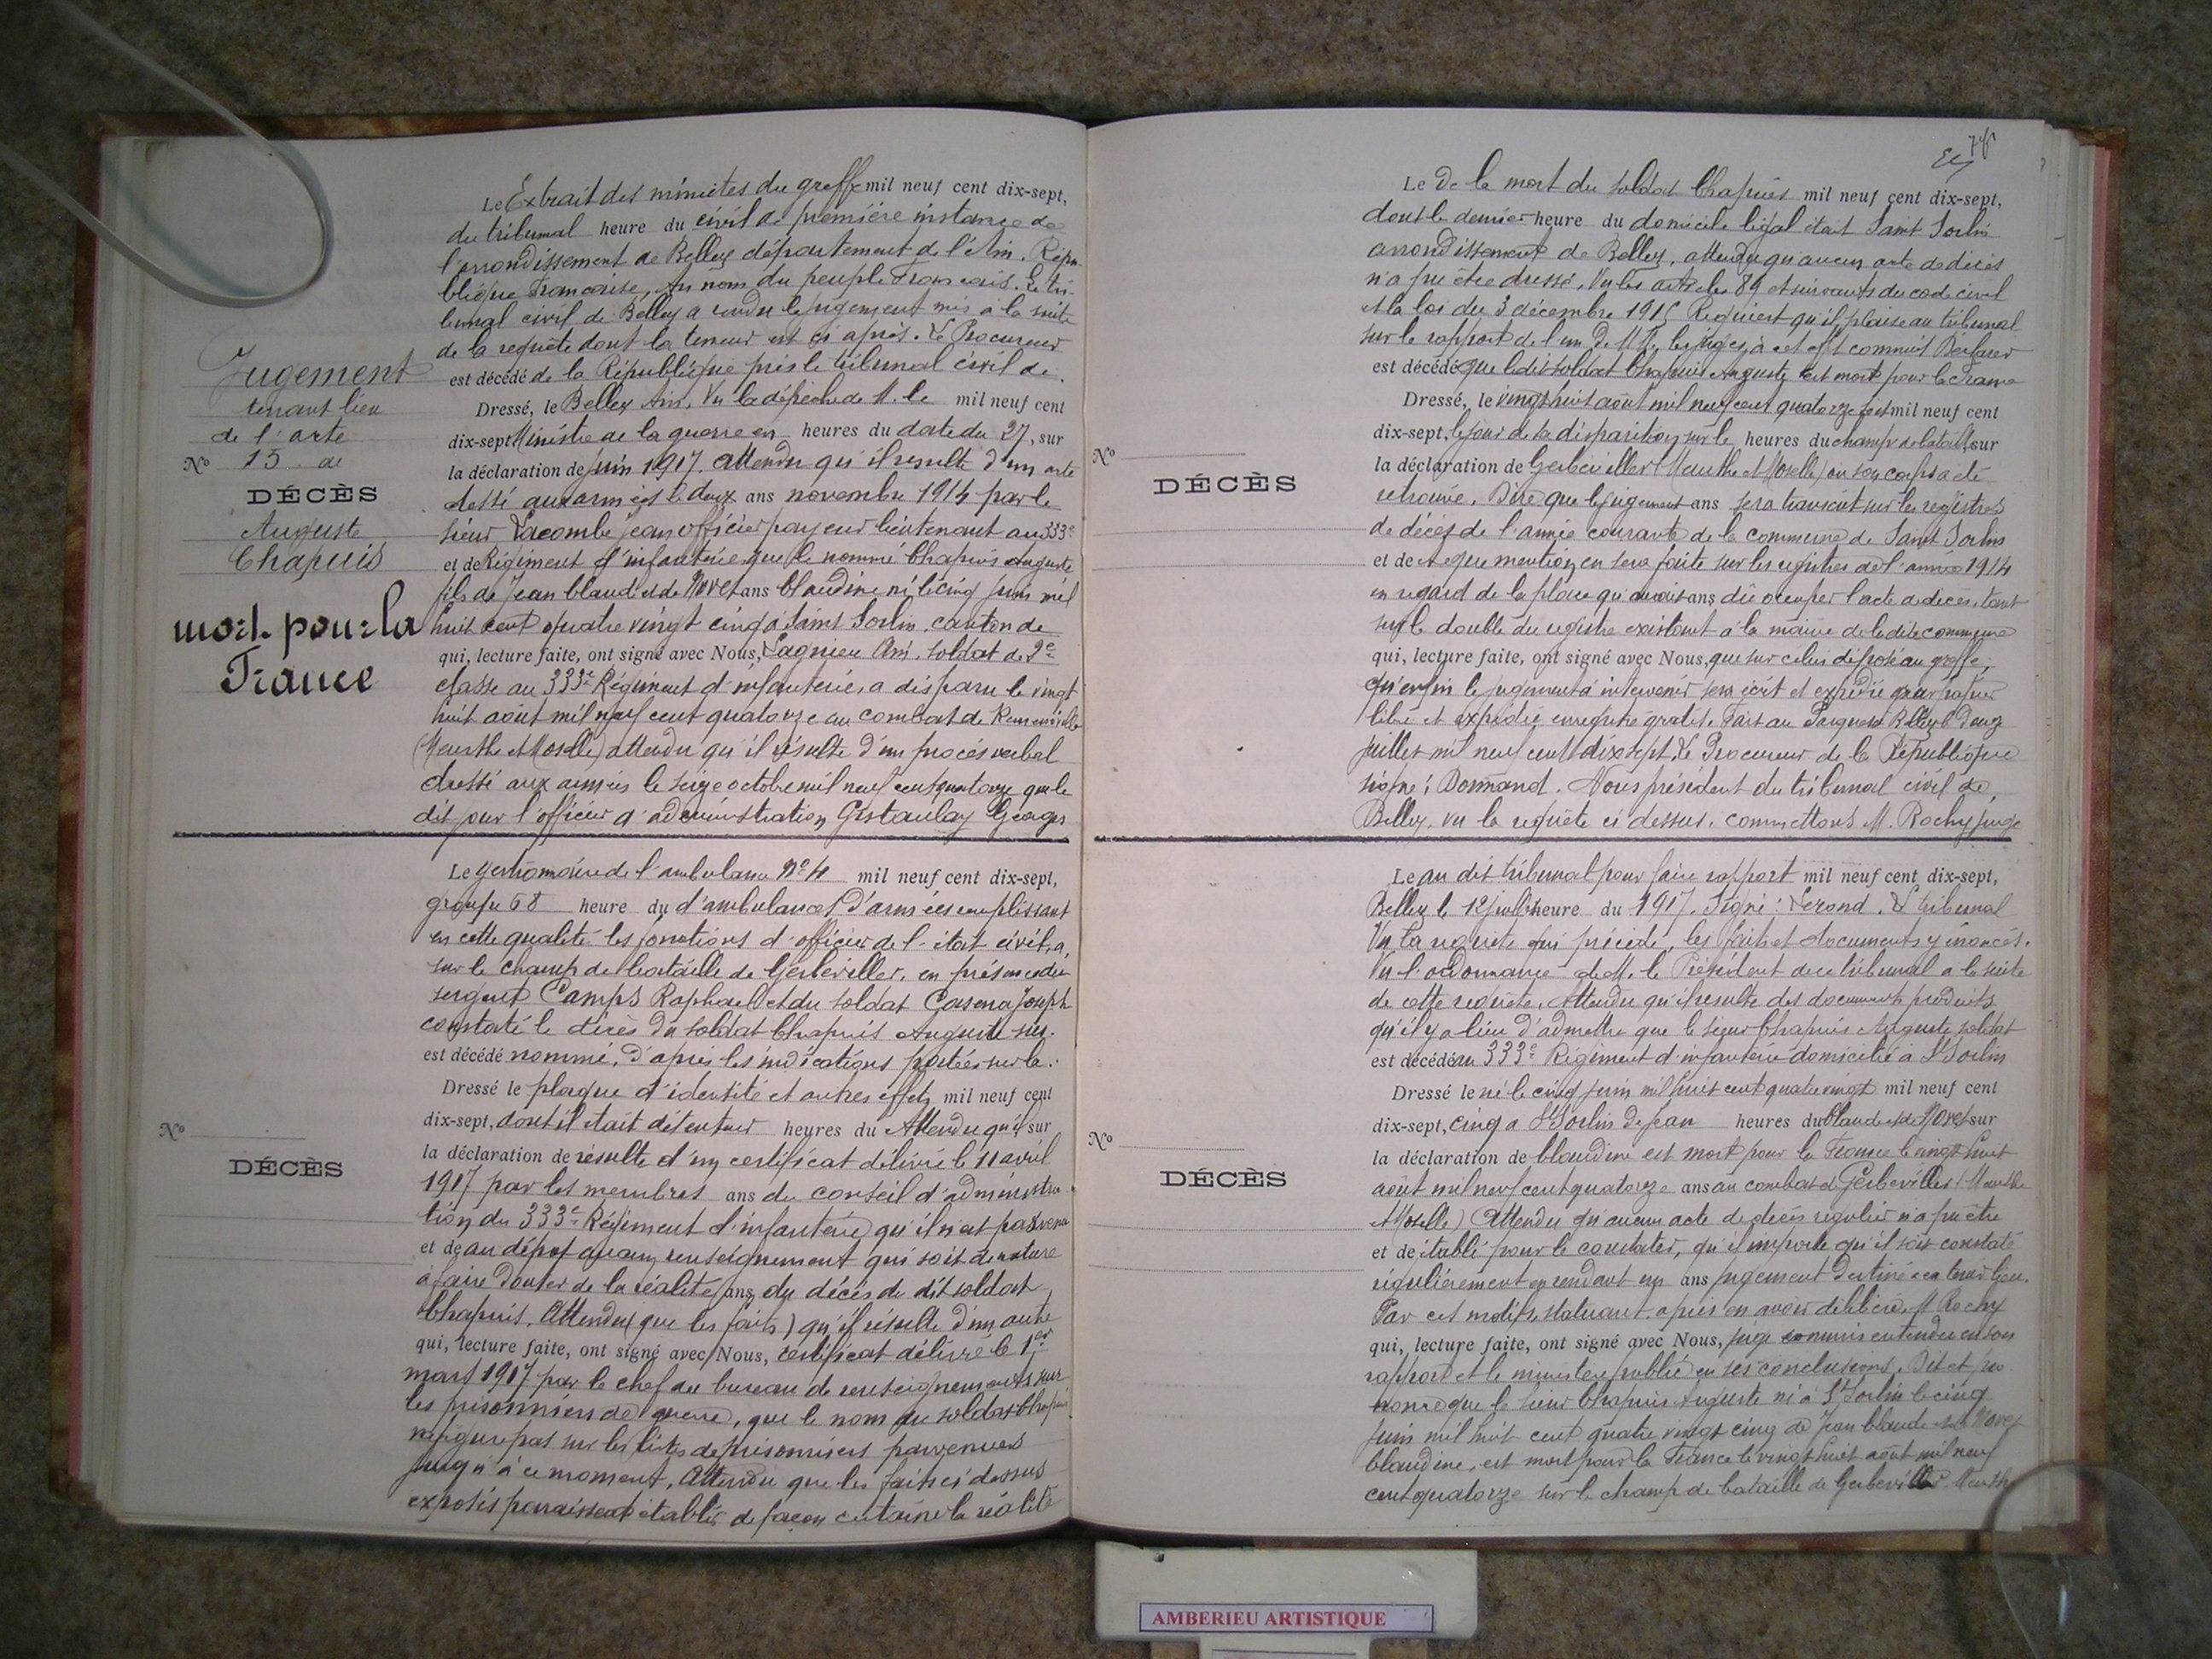 Le Extrait des minutes du greffe mil neuf cent dix-sept,
du tribunal heure du civil de première instance de
l'arrondissement de Belley département de l'Ain. Répu-
blique Française, Au nom du peuple Français. Le tri-
bunal civil de Belley a rendu le jugement mis à la suite
de la requête dont la teneur est ci après. Le Procureur
est décédé de la République près le tribunal civil de
Dressé, le Belley Ain, Vu la dépêche de M. le mil neuf cent
dix-sept Ministre de la guerre en heures du date du 27, sur
la déclaration de juin 1917. Attendu qu'il résulte d'un acte
dressé aux armées le deux ans novembre 1914 par le
sieur Lacombe jean officier payeur lieutenant au 333e
et de Régiment d'infanterie que le nommé Chapuis Auguste
fils de Jean Claude et de Novet ans Claudine né le cinq juin mil
huit cent quatre vingt cinq à Saint Sorlin canton de
qui, lecture faite, ont signé avec Nous, Lagnieu Ain, soldat de 2e
classe au 333e Régiment d'infanterie, a disparu le vingt
huit août mil neuf cent quatorze au combat de
(Meurthe et Moselle) attendu qu'il résulte d'un procès verbal
dressé aux armées le seize octobre mil neuf cent quatorze que le
dit jour l'officier d'administration Georges
Jugement
tenant lieu
de l'acte
No 15 de
DÉCÈS
Auguste
Chapuis
mort pour la
France
Le gestionnaire de l'ambulance No 4 mil neuf cent dix-sept,
groupe 68 heure du d'ambulances d'armées remplissant
en cette qualité les fonctions d'officier de l'état civil, a,
sur le champ de bataille de Gerbéviller, en présence du
sergent Camps Raphael et du soldat Casena Joseph
constaté le décès du soldat Chapuis Auguste sus-
est décédé nommé, d'après les indications portées sur la
Dressé le plaque d'identité et autres effets mil neuf cent
dix-sept, dont il était détenteur heures du Attendu qu'il sur
la déclaration de résulte d'un certificat délivré le 11 avril
1917 par les membres ans du conseil d'administra-
tion du 333e Régiment d'infanterie qu'il n'est pas venu
et de au dépôt aucun renseignement qui soit de nature
à faire douter de la réalité ans du décès du dit soldat
Chapuis. Attendu (que les faits) qu'il résulte d'un autre
qui, lecture faite, ont signé avec Nous, certificat délivré le 1er
mars 1917 par le chef du bureau de renseignements sur
les prisonniers de guerre, que le nom du soldat Chapuis
ne figure pas sur les listes de prisonniers parvenues
jusqu'à ce moment. Attendu que les faits ci dessus
exposés paraissent établir de façon certaine la réalité
No
DÉCÈS
Le De la mort du soldat Chapuis mil neuf cent dix-sept,
dont le dernier heure du domicile légal était Saint Sorlin
arrondissement de Belley, attendu qu'aucun acte de décès
n'a pu être dressé. Vu les articles 89 et suivants du code civil
et la loi du 3 décembre 1915 Requiert qu'il plaise au tribunal
sur le rapport de l'un de MM. les juges à cet effet commis Déclarer
est décédé que le dit soldat Chapuis Auguste est mort pour la France
Dressé, le vingt huit août mil neuf cent quatorze mil neuf cent
dix-sept, le jour de sa disparition sur le heures du champ de bataille sur
la déclaration de Gerbéviller (Meurthe et Moselle) où son corps a été
retrouvé. Dire que le jugement ans sera transcrit sur les registres
de décès de l'année courante de la commune de Saint Sorlin
et de et que mention en sera faite sur les registres de l'année 1914
en regard de la place qu'aurait ans dû occuper l'acte de décès, tant
sur le double du registre existant à la mairie de la dite commune
qui, lecture faite, ont signé avec Nous, que sur celui déposé au greffe;
qu'enfin le jugement à intervenir sera écrit et expédié sur papier
libre et expédié enregistré gratis. Fait au Parquet à Belley le douze
juillet mil neuf cent dix sept. Le Procureur de la République
signé: Dormand. Nous président du tribunal civil de
Belley, vu la requête ci dessus, commettons M. Rochy juge
No
DÉCÈS
Le au dit tribunal pour faire rapport mil neuf cent dix-sept,
Belley le 12 juillet heure du 1917. Signé: Lerond. Le tribunal
Vu la requête qui précède, les faits et documents y énoncés.
Vu l'ordonnance de M. le Président de ce tribunal à la suite
de cette requête. Attendu qu'il résulte des documents produits
qu'il y a lieu d'admettre que le sieur Chapuis Auguste soldat
est décédé au 333e Régiment d'infanterie domicilié à St Sorlin
Dressé le né le cinq juin mil huit cent quatre vingt mil neuf cent
dix-sept, cinq à St Sorlin de Jean heures du Claude et de Novet sur
la déclaration de Claudine est mort pour la France le vingt huit
août mil neuf cent quatorze ans au combat de Gerbéviller (Meurthe
et Moselle) Attendu qu'aucun acte de décès régulier n'a pu être
et de établi pour le constater, qu'il importe qu'il soit constaté
régulièrement en rendant un ans jugement destiné à en tenir lieu.
Par ces motifs, statuant, après en avoir délibéré, M Rochy
qui, lecture faite, ont signé avec Nous, juge commis entendu en son
rapport et le ministère public en ses conclusions. Dit et pro-
nonce que le sieur Chapuis Auguste né à St Sorlin le cinq
juin mil huit cent quatre vingt cinq de Jean Claude et de Novet
Claudine, est mort pour la France le vingt huit août mil neuf
cent quatorze sur le champ de bataille de Gerbéviller Meurthe
No
DÉCÈS
AMBERIEU ARTISTIQUE